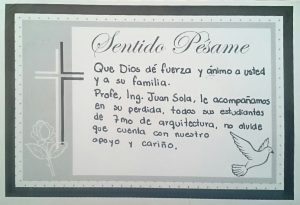 Sentido Pésame
Que Dios dé fuerza y ánimo a usted
y a su familia.
Profe, Ing. Juan Sola, le acompañamos
en su perdida, todos sus estudiantes
de 7mo de arquitectura, no olvide
que cuenta con nuestro
apoyo y cariño.